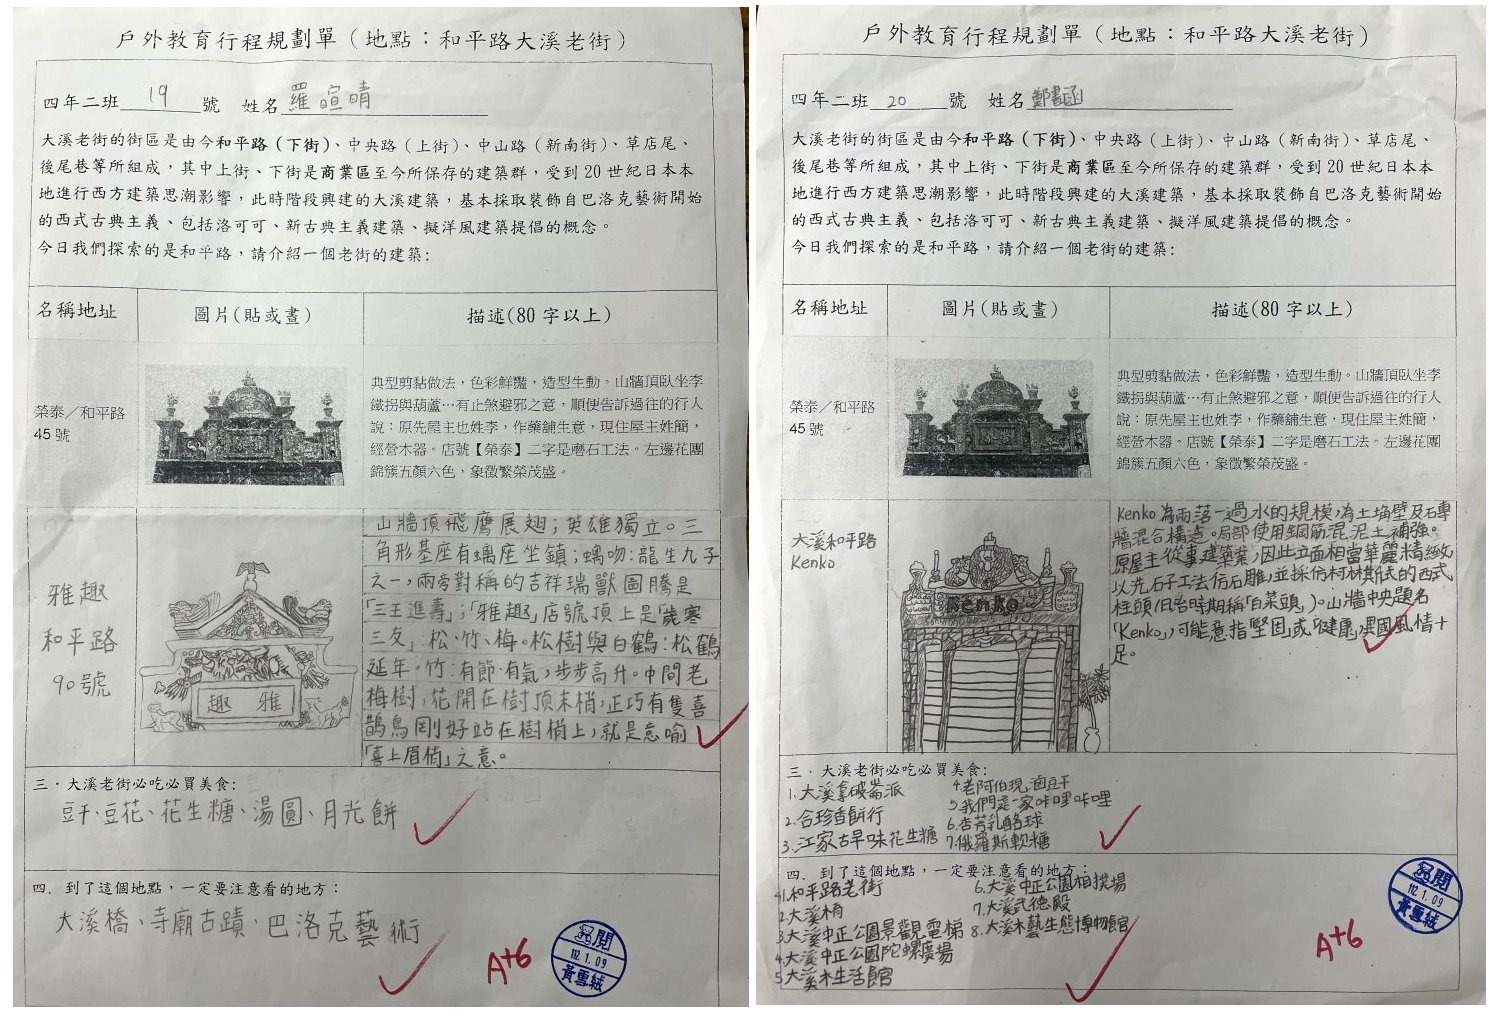 戶外教育行程規劃單（地點：和平路大溪老街）
四年二班 19 號 姓名 羅暄晴
大溪老街的街區是由今和平路（下街）、中央路（上街）、中山路（新南街）、草店尾、
後尾巷等所組成，其中上街、下街是商業區至今所保存的建築群，受到 20 世紀日本本
地進行西方建築思潮影響，此時階段興建的大溪建築，基本採取裝飾自巴洛克藝術開始
的西式古典主義、包括洛可可、新古典主義建築、擬洋風建築提倡的概念。
今日我們探索的是和平路，請介紹一個老街的建築:
名稱地址
圖片(貼或畫)
描述(80 字以上)
榮泰／和平路
45 號
典型剪黏做法，色彩鮮豔，造型生動。山牆頂臥坐李
鐵拐與葫蘆…有止煞避邪之意，順便告訴過往的行人
說：原先屋主也姓李，作藥舖生意，現住屋主姓簡，
經營木器。店號【榮泰】二字是磨石工法。左邊花團
錦簇五顏六色，象徵繁榮茂盛。
雅趣
和平路
90號
趣 雅
山牆頂飛鷹展翅；英雄獨立。三
角形基座有螭座坐鎮；螭吻:龍生九子
之一，兩旁對稱的吉祥瑞獸圖騰是
「三王進壽」；「雅趣」店號頂上是「歲寒
三友」:松、竹、梅。松樹與白鶴:松鶴
延年。竹:有節、有氣，步步高升。中間老
梅樹，花開在樹頂末梢，正巧有隻喜
鵲鳥剛好站在樹梢上，就是意喻
「喜上眉梢」之意。
三．大溪老街必吃必買美食:
豆干、豆花、花生糖、湯圓、月光餅
四．到了這個地點，一定要注意看的地方：
大溪橋、寺廟古蹟、巴洛克藝術
A+6
閱
112.1.09
黃雪絨
戶外教育行程規劃單（地點：和平路大溪老街）
四年二班 20 號 姓名 鄭書函
大溪老街的街區是由今和平路（下街）、中央路（上街）、中山路（新南街）、草店尾、
後尾巷等所組成，其中上街、下街是商業區至今所保存的建築群，受到 20 世紀日本本
地進行西方建築思潮影響，此時階段興建的大溪建築，基本採取裝飾自巴洛克藝術開始
的西式古典主義、包括洛可可、新古典主義建築、擬洋風建築提倡的概念。
今日我們探索的是和平路，請介紹一個老街的建築:
名稱地址
圖片(貼或畫)
描述(80 字以上)
榮泰／和平路
45 號
典型剪黏做法，色彩鮮豔，造型生動。山牆頂臥坐李
鐵拐與葫蘆…有止煞避邪之意，順便告訴過往的行人
說：原先屋主也姓李，作藥舖生意，現住屋主姓簡，
經營木器。店號【榮泰】二字是磨石工法。左邊花團
錦簇五顏六色，象徵繁榮茂盛。
大溪和平路
Kenko
Kenko
Kenko為兩落一過水的規模，為土埆壁及石專
牆混合構造。局部使用鋼筋混泥土補強。
原屋主從事建築業，因此立面相當華麗精緻，
以洗石子工法仿石雕，並採仿柯林斯式的西式
柱頭(日治時期稱「白菜頭」)。山牆中央題名
「Kenko」，可能意指堅固或「健康」，異國風情十
足。
三．大溪老街必吃必買美食:
1.大溪拿破崙派
2.合珍香餅行
3.江家古早味花生糖
4.老阿伯現滷豆干
5.我們這一家咔哩咔哩
6.杏芳乳酪球
7.俄羅斯軟糖
四．到了這個地點，一定要注意看的地方：
1.和平路老街
2.大溪橋
3.大溪中正公園景觀電梯
4.大溪中正公園陀螺廣場
5.大溪木生活館
6.大溪中正公園相撲場
7.大溪武德殿
8.大溪木藝生態博物館
A+6
閱
112.1.09
黃雪絨